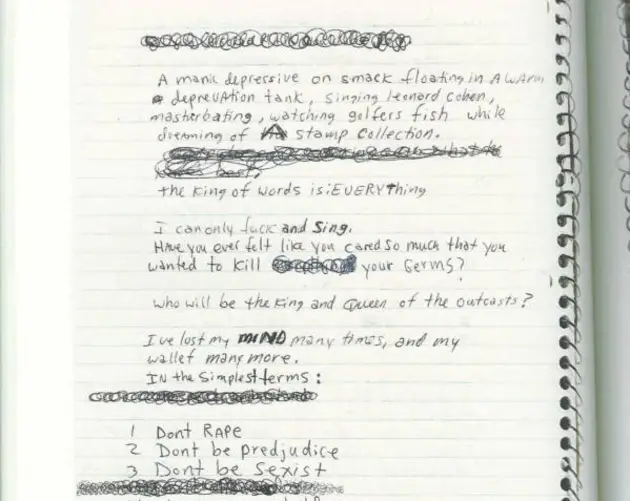 A manic depressive on smack floating in A WArm
deprevAtion tank, singing leonard cohen,
masterbating, watching golfers fish while
dreaming of A stamp collection.
the King of words is:EVERYthing
I can only fuck and Sing.
Have you ever felt like you cared so much that you
wanted to kill your Germs?
who will be the King and Queen of the outcasts?
I've lost my MIND many times, and my
wallet many more.
IN the Simplest terms:
1 Dont RAPE
2 Dont be predjudice
3 Dont be Sexist